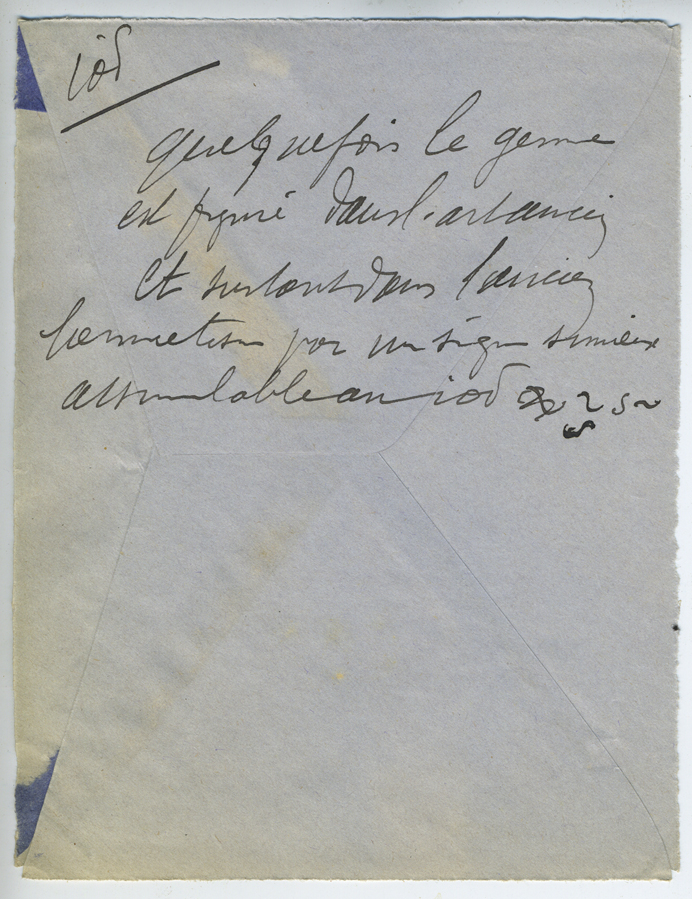 iod
quelquefois le germe
est figuré dans l'art ancien
et surtout dans l'ancien
hermetisme par un signe
assimilable au iod